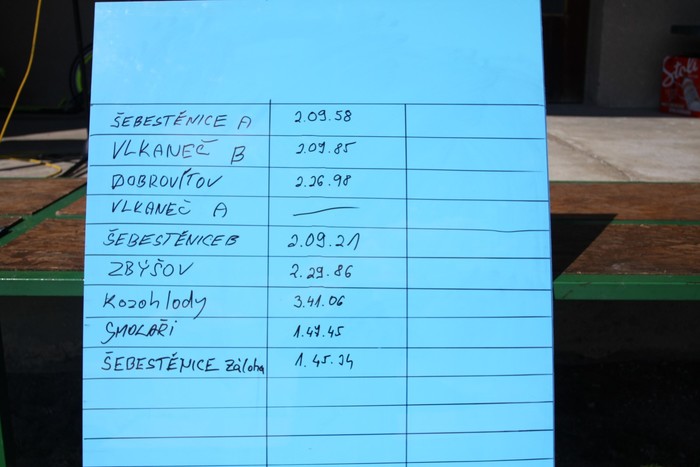 ŠEBESTĚNICE A 2.09.58
VLKANEČ B 2.09.85
DOBROVÍTOV 2.26.98
VLKANEČ A —
ŠEBESTĚNICE B 2.09.21
ZBÝŠOV 2.29.86
Kozohlody 3.41.06
SMOLAŘI 1.47.45
ŠEBESTĚNICE záloha 1.45.34
Stoli